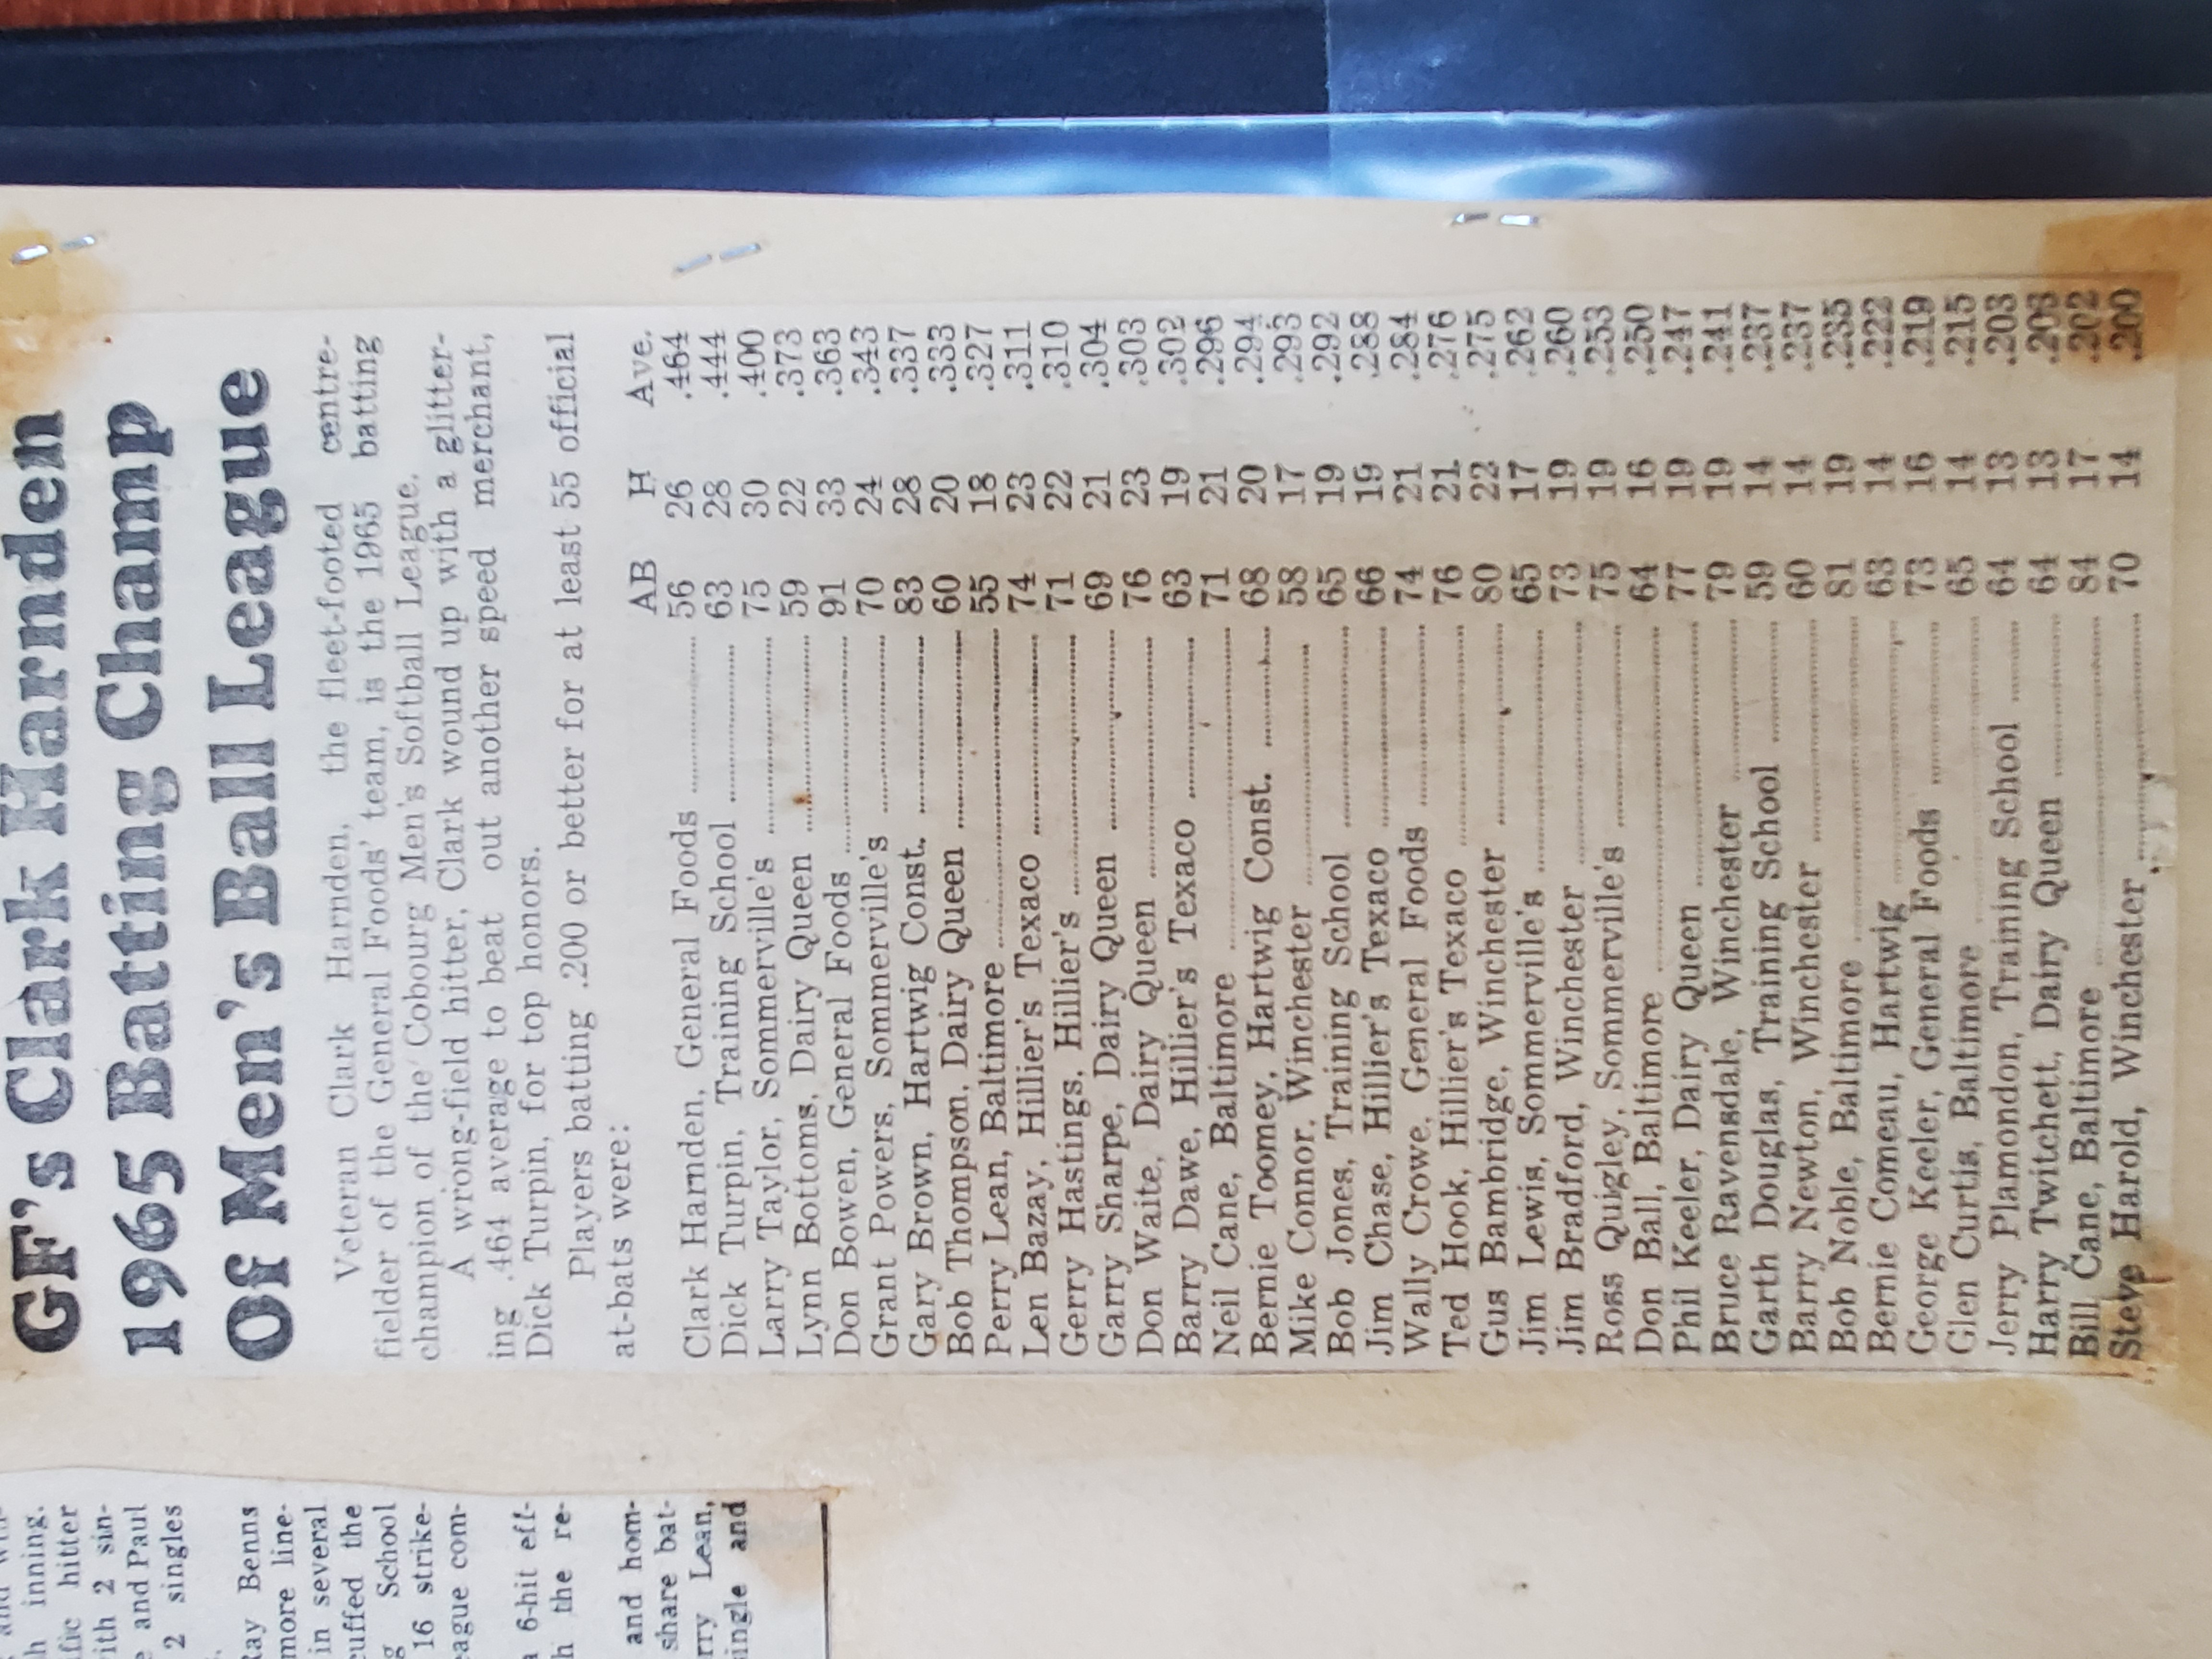 GF's Clark Harnden
1965 Batting Champ
Of Men's Ball League
Veteran Clark Harnden, the fleet-footed centre-
fielder of the General Foods' team, is the 1965 batting
champion of the Cobourg Men's Softball League.
A wrong-field hitter, Clark wound up with a glitter-
ing .464 average to beat out another speed merchant,
Dick Turpin, for top honors.
Players batting .200 or better for at least 55 official
at-bats were:
AB H Ave.
Clark Harnden, General Foods 56 26 .464
Dick Turpin, Training School 63 28 .444
Larry Taylor, Sommerville's 75 30 .400
Lynn Bottoms, Dairy Queen 59 22 .373
Don Bowen, General Foods 91 33 .363
Grant Powers, Sommerville's 70 24 .343
Gary Brown, Hartwig Const. 83 28 .337
Bob Thompson, Dairy Queen 60 20 .333
Perry Lean, Baltimore 55 18 .327
Len Bazay, Hillier's Texaco 74 23 .311
Gerry Hastings, Hillier's 71 22 .310
Garry Sharpe, Dairy Queen 69 21 .304
Don Waite, Dairy Queen 76 23 .303
Barry Dawe, Hillier's Texaco 63 19 .302
Neil Cane, Baltimore 71 21 .296
Bernie Toomey, Hartwig Const. 68 20 .294
Mike Connor, Winchester 58 17 .293
Bob Jones, Training School 65 19 .292
Jim Chase, Hillier's Texaco 66 19 .288
Wally Crowe, General Foods 74 21 .284
Ted Hook, Hillier's Texaco 76 21 .276
Gus Bambridge, Winchester 80 22 .275
Jim Lewis, Sommerville's 65 17 .262
Jim Bradford, Winchester 73 19 .260
Ross Quigley, Sommerville's 75 19 .253
Don Ball, Baltimore 64 16 .250
Phil Keeler, Dairy Queen 77 19 .247
Bruce Ravensdale, Winchester 79 19 .241
Garth Douglas, Training School 59 14 .237
Barry Newton, Winchester 60 14 .237
Bob Noble, Baltimore 81 19 .235
Bernie Comeau, Hartwig 63 14 .222
George Keeler, General Foods 73 16 .219
Glen Curtis, Baltimore 65 14 .215
Jerry Plamondon, Training School 64 13 .203
Harry Twitchett, Dairy Queen 64 13 .203
Bill Cane, Baltimore 84 17 .202
Steve Harold, Winchester 70 14 .200
inning.
hitter
2 sin-
and Paul
2 singles
Ray Benns
more line-
in several
School
16 strike-
com-
6-hit eff-
the re-
and hom-
share bat-
Lean,
and